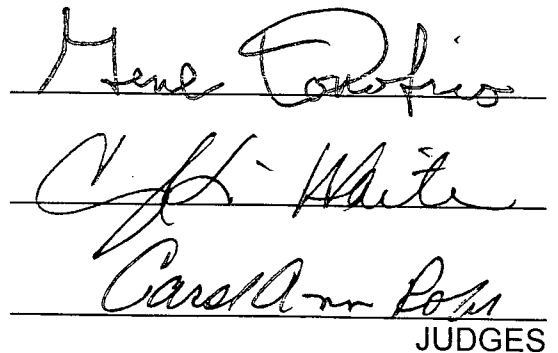 Gene Donofrio
Waite
Carol Ann Robb
JUDGES